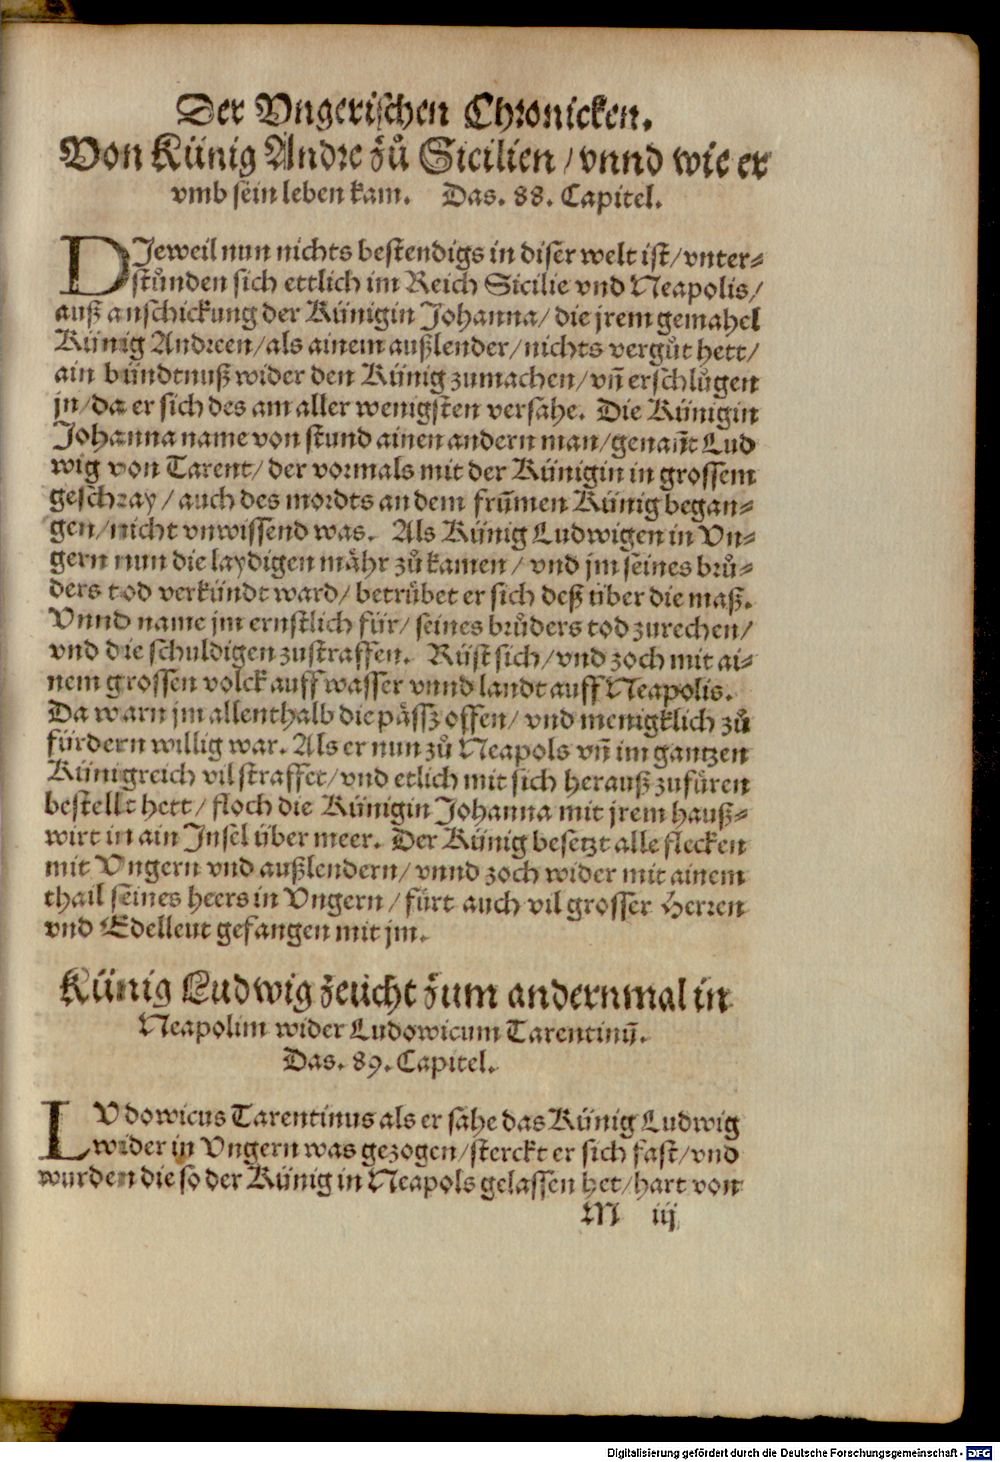 Der Vngerischen Chronicken.
Von Künig Andre zů Sicilien / vnnd wie er
vmb sein leben kam. Das. 88. Capitel.
DJeweil nun nichts bestendigs in diser welt ist/ vnter-
stůnden sich ettlich im Reich Sicilie vnd Neapolis/
auß anschickung der Künigin Johanna/ die jrem gemahel
Künig Andreen/ als ainem außlender/ nichts vergůt hett/
ain bündtnuß wider den Künig zumachen/ vñ erschlůgen
jn/ da er sich des am aller wenigsten versahe. Die Künigin
Johanna name von stund ainen andern man/ genañt Lud
wig von Tarent/ der vormals mit der Künigin in grossem
geschray / auch des mordts an dem frum̃en Künig began-
gen/ nicht vnwissend was. Als Künig Ludwigen in Vn-
gern nun die laydigen mähr zů kamen / vnd jm seines brů-
ders tod verkündt ward/ betrübet er sich deß über die maß.
Vnnd name jm ernstlich für/ seines brůders tod zurechen/
vnd die schuldigen zustraffen. Rüst sich/ vnd zoch mit ai-
nem grossen volck auff wasser vnnd landt auff Neapolis.
Da warn jm allenthalb die pässz offen/ vnd menigklich zů
fürdern willig war. Als er nun zů Neapols vñ im gantzen
Künigreich vil straffet/ vnd etlich mit sich herauß zufüren
bestellt hett/ floch die Künigin Johanna mit jrem hauß-
wirt in ain Jnsel über meer. Der Künig besetzt alle flecken
mit Vngern vnd außlendern/ vnnd zoch wider mit ainem
thail seines heers in Vngern / fürt auch vil grosser Herren
vnd Edelleut gefangen mit jm.
Künig Ludwig zeücht zum andernmal in
Neapolim wider Ludowicum Tarentinũ.
Das. 89. Capitel.
LVdowicus Tarentinus als er sahe das Künig Ludwig
wider in Vngern was gezogen/ sterckt er sich fast/ vnd
wurden die so der Künig in Neapols gelassen het/ hart von
M iij
Digitalisierung gefördert durch die Deutsche Forschungsgemeinschaft - DFG